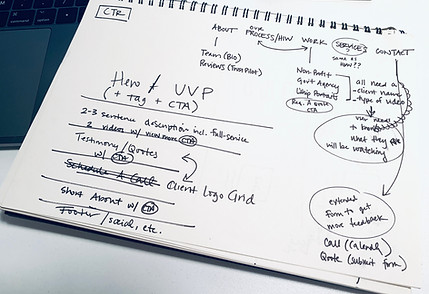 CTR
ABOUT
OUR PROCESS/HIW
WORK
SERVICES
CONTACT
same as
Team (Bio)
Reviews (TrustPilot)
Non Profit
Gov't Agency
Req. A Quote
CTA
all need a
- client name
- type of video
what they are
will be watching
Hero / UVP
(+ tag + CTA)
2-3 sentence description incl. full-service
2 videos w/ view more CTA
Testimony/Quotes
w/ CTA
Schedule A Call
Client Logo Grid
Short About w/ CTA
Footer/social, etc.
extended
form to get
more feedback
Call (Calendly)
Quote (submit form)